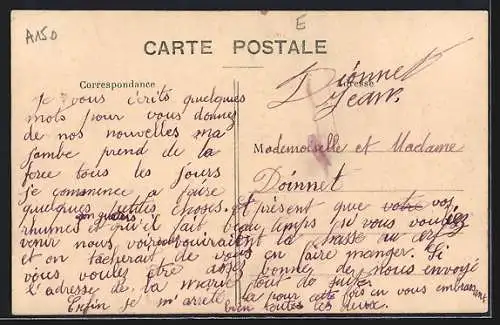 A150
E
CARTE POSTALE
Correspondance
Adresse
Dionnet
Jean.
Mademoiselle et Madame
Doinnet
Je vous écrits quelques
mots pour vous donnez
de nos nouvelles ma
Jambe prend de la
force tous les jours
je commence a faire
quelques petites choses. et présent que votre vos
rhumes son guéris et qu'il fait beau temps si vous vouliez
venir nous voir la chasse au cerf
et on tacherait de vous en faire manger. Si
vous voulez être assez bonne de nous envoyé
l'adresse de la marie tout de suite
Enfin je m'arrête la pour cette fois en vous embrassant
bien toutes les deux.